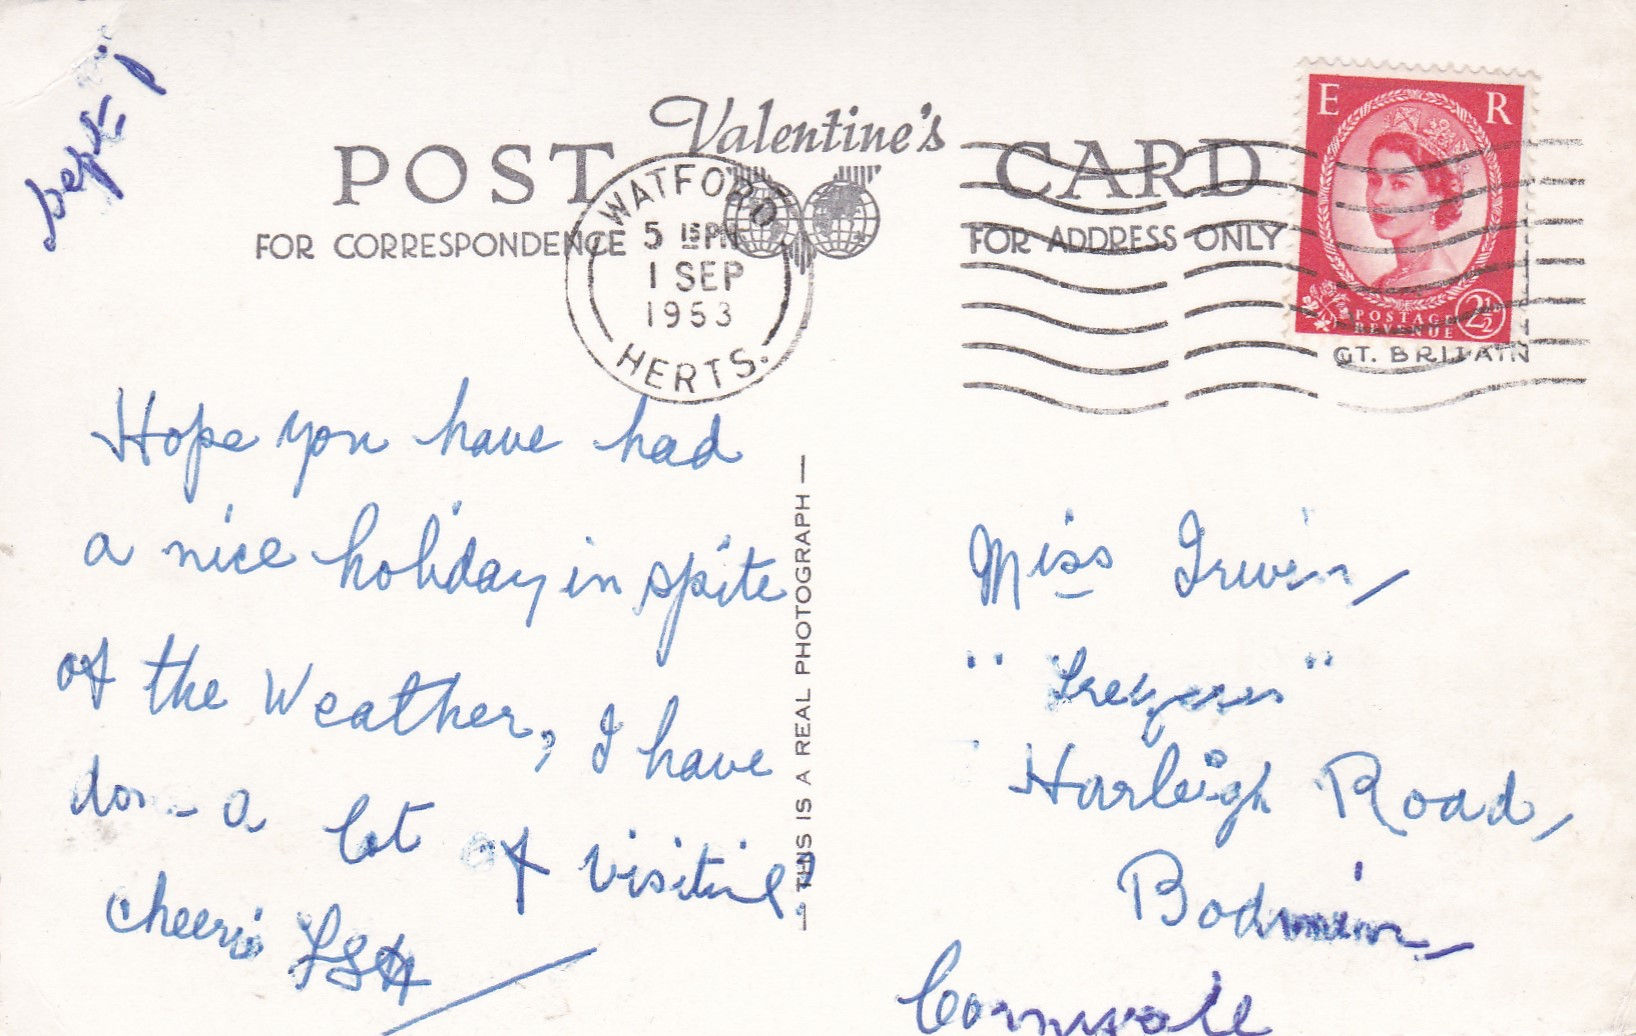 Sept. 1
Valentine's
POST CARD
FOR CORRESPONDENCE
FOR ADDRESS ONLY
WATFORD
5 15 PM
1 SEP
1953
HERTS.
E R
POSTAGE
REVENUE
2½
GT. BRITAIN
Hope you have had
a nice holiday in spite
of the Weather, I have
done a lot of visiting.
cheerio
— THIS IS A REAL PHOTOGRAPH —
Miss Irwin,
Harleigh Road,
Bodmin,
Cornwall